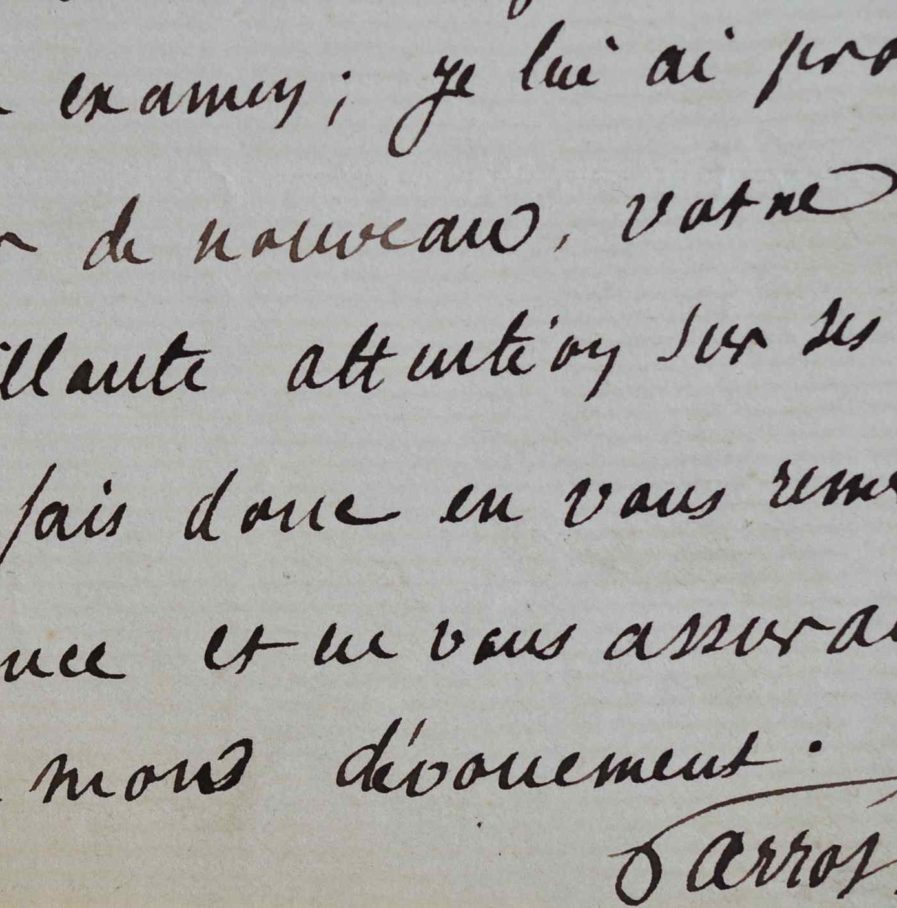 examen ; je lui ai pro
de nouveau, votre
illante attention sur ses
fais donc en vous reme
nce et en vous assura
mon dévouement.
Parrot